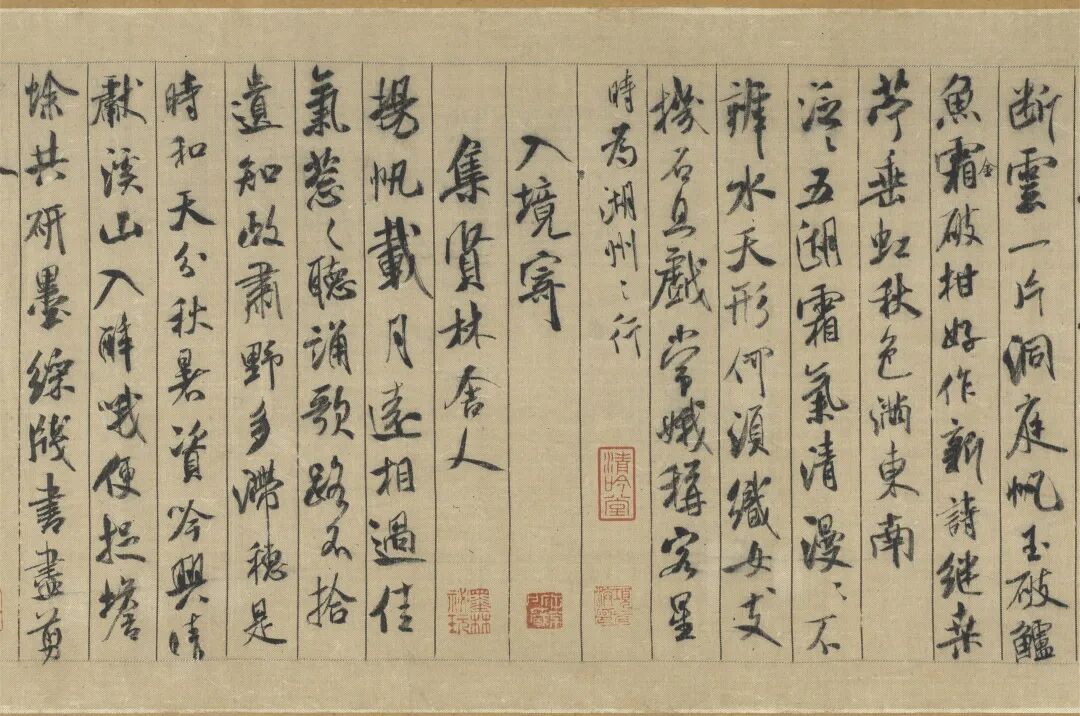 断雲一片洞庭帆玉破鱸
魚霜金破柑好作新詩継桑
苧垂虹秋色滿東南
泛〻五湖霜氣清漫〻不
辨水天形何須織女支
機石且戲常娥稱客星
時為湖州之行
清吟堂
入境寄
集賢林舍人
墨林秘玩
揚帆載月遠相過佳
氣葱〻聽誦歌路不拾
遺知政肅野多滯穗是
時和天分秋暑資吟興晴
獻溪山入醉哦便捉蟾
蜍共研墨綵牋書盡剪